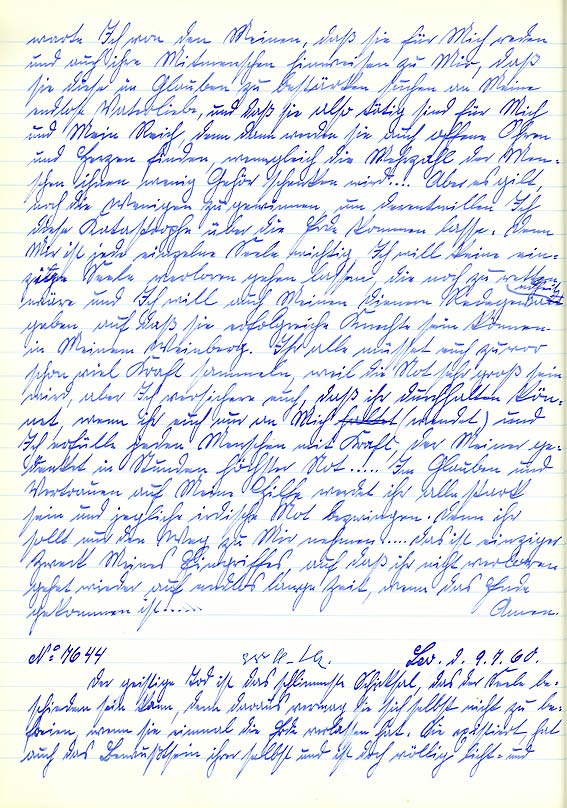 warte Ich von den Meinen, daß sie für Mich reden
und auch ihre Mitmenschen hinweisen zu Mir, daß
sie diese im Glauben zu bestärken suchen an Meine
endlose Vaterliebe, und daß sie also tätig sind für Mich
und Mein Reich, denn dann werden sie auch offene Ohren
und Herzen finden, wenngleich die Mehrzahl der Men-
schen ihnen wenig Gehör schenken wird.... Aber es gilt,
noch die Wenigen zu gewinnen, um derentwillen Ich
diese Katastrophe über die Erde kommen lasse. Denn
Mir ist jede einzelne Seele wichtig, Ich will keine ein-
zige Seele verloren gehen lassen, die noch zu retten
wäre und Ich will auch Meinen Dienern Redegewandt
geben, auf daß sie erfolgreiche Knechte sein können
in Meinem Weinberg. Ihr alle müsset euch zuvor
schon viel Kraft sammeln, weil die Not sehr groß sein
wird, aber Ich versichere euch, daß ihr durchhalten kön-
net, wenn ihr euch nur an Mich haltet (wendet) und
Ich erfülle jeden Menschen mit Kraft, der Meiner ge-
denket in Stunden höchster Not..... Im Glauben und
Vertrauen auf Meine Hilfe werdet ihr alle stark
sein und jegliche irdische Not bezwingen. Denn ihr
sollt nur den Weg zu Mir nehmen.... das ist einziger
Zweck Meines Eingriffes, auf daß ihr nicht verloren
gehet wieder auf endlos lange Zeit, wenn das Ende
gekommen ist......
Amen.
No 7644
9.7.60.
Der geistige Tod ist das schlimmste Schicksal, das der Seele be-
schieden sein kann, denn daraus vermag sie sich selbst nicht zu be-
freien, wenn sie einmal die Erde verlassen hat. Sie existiert, hat
auch das Bewußtsein ihrer selbst und ist doch völlig licht- und